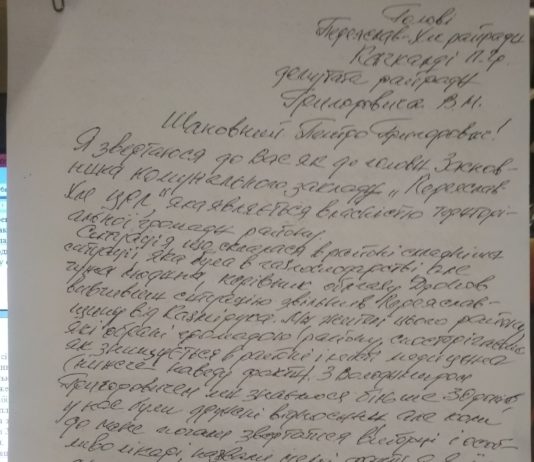 Голові
Переяслав-Хм райради
Качкалді П.Гр.
депутата райради
Григоровича В.М.
Шановний Петро Григорович!
Я звертаюся до Вас як до голови Заснов-
ника комунального закладу "Переяслав
Хм ЦРЛ" яка являється власністю територі-
альної громади району.
Ситуація що склалася в районі складніша
ситуації яка була в газогосподарстві але
чужа людина, керівник облгазу Дронов
вивчивши ситуацію звільнив Переяслав-
щину від. Ми жителі цього району,
які обрані громадою району спостерігаємо
як знищується в районі і медицина
(нижче наведу факти). З Володимиром
Григоровичем ми знаємося більше 30 років,
у нас були дружні відносини але коли
до мене почали звертатися виборці і особ-
ливо лікарі,